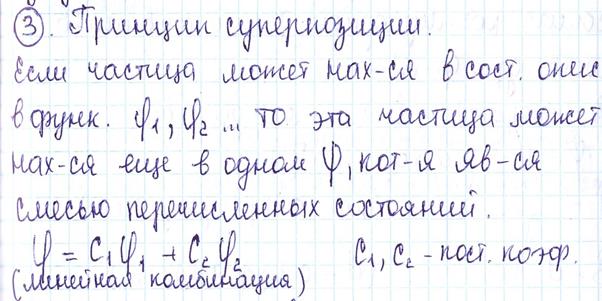 ③. Принцип суперпозиции.
Если частица может нах-ся в сост. опис
в функ. φ₁, φ₂ ... то эта частица может
нах-ся еще в одном φ, кот-я яв-ся
смесью перечисленных состояний.
φ = C₁φ₁ + C₂φ₂ C₁, C₂ - пост. коэф.
(линейная комбинация)